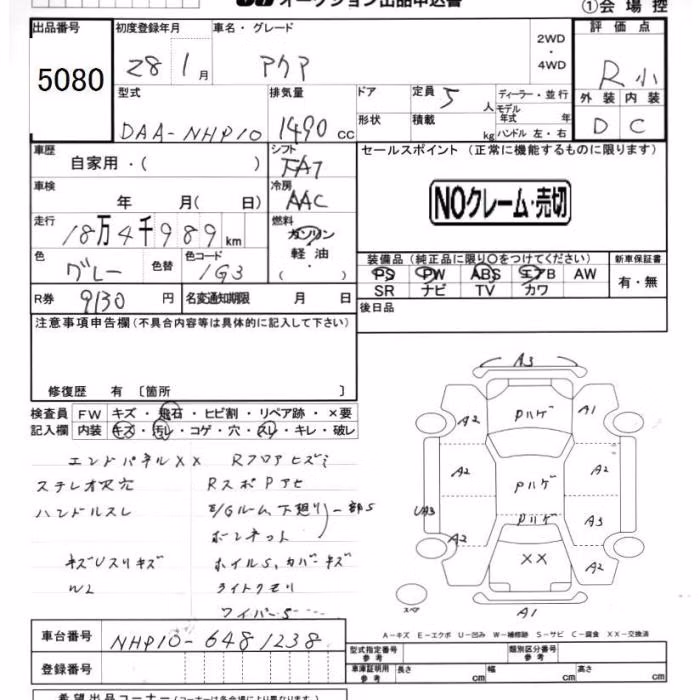 オークション出品申込書
①会場控
出品番号 5080
初度登録年月 28 1月
車名・グレード アクア
2WD・4WD
評価点 R小
外装 D 内装 C
型式 DAA-NHP10
排気量 1490 cc
ドア 形状
定員 5 人
積載 kg
ディーラー・並行
モデル年式 年
ハンドル 左・右
車歴 自家用・( )
シフト FAT
セールスポイント (正常に機能するものに限ります)
NOクレーム・売切
車検 年 月( 日)
冷房 AAC
走行 18万4千989km
燃料 ガソリン 軽油 ・( )
色 グレー 色替 色コード 1G3
装備品 (純正品に限り○をつけてください)
新車保証書 有・無
PS PW ABS エアB AW
SR ナビ TV カワ
R券 9130 円 名変通知期限 月 日
後日品
注意事項申告欄 (不具合内容等は具体的に記入して下さい)
修復歴 有 〔箇所 〕
検査員記入欄
FW キズ・飛石・ヒビ割・リペア跡・×要
内装 キズ・汚レ・コゲ・穴・スレ・キレ・破レ
エンドパネルXX Rフロアヒズミ
ステレオR穴 RスポPアセ
ハンドルスレ E/Gルーム、下廻り 一部S
ボンネット
キズUスリキズ ホイルS、カバーキズ
W2 ライトクモリ
ワイパーS
A3
Pハゲ
A2 A1
A2 Pハゲ A2
UA3 Pハゲ A3
A2 XX A2
スペア
A1
A-キズ E-エクボ U-凹み W-補修跡 S-サビ C-腐食 XX-交換済
車台番号 NHP10-6481238
登録番号
型式指定番号 参考
類別区分番号 参考
車庫証明用 参考 長さ cm 幅 cm 高さ cm
希望出品コーナー (コーナーは各会場により異なります)